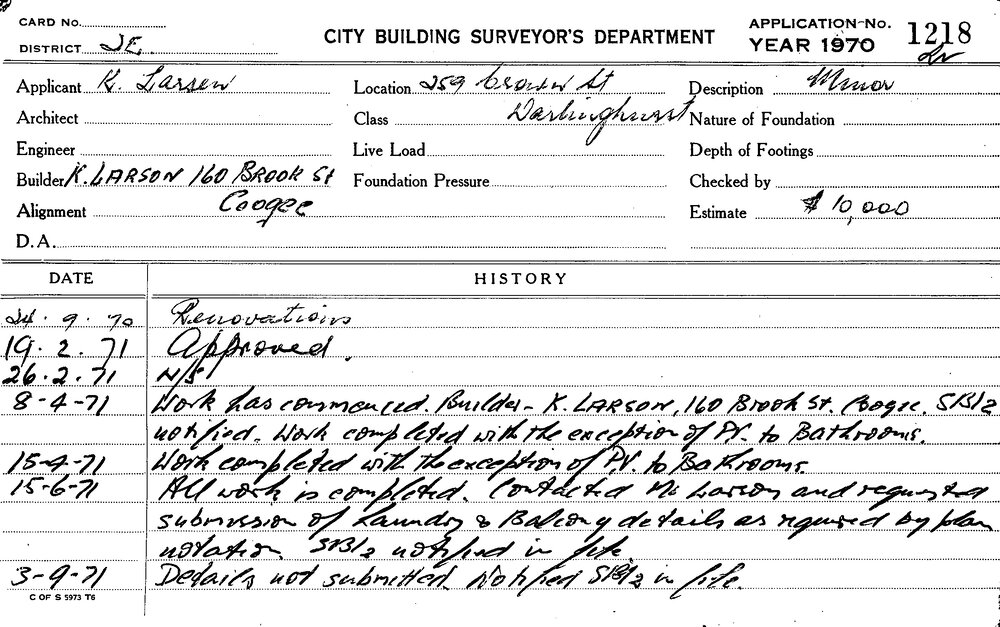 CARD No.
DISTRICT JE.
CITY BUILDING SURVEYOR'S DEPARTMENT
APPLICATION No. 1218
YEAR 1970
Applicant K. Larsen
Location 259 Crown St
Description Minor
Architect
Class Darlinghurst
Nature of Foundation
Engineer
Live Load
Depth of Footings
Builder K. LARSON 160 BROOK St
Foundation Pressure
Checked by
Alignment Coogee
Estimate $ 10,000
D.A.
DATE HISTORY
24. 9. 70 Renovations
19. 2. 71 Approved.
26. 2. 71 N/S
8-4-71 Work has commenced. Builder - K. LARSON, 160 Brook St. Coogee. SBI/2
notified. Work completed with the exception of PV. to Bathrooms.
15-4-71 Work completed with the exception of PV. to Bathrooms.
15-6-71 All work is completed. Contacted Mr Larson and requested
submission of Laundry & Balcony details as required by plan
notation. SBI/2 notified in file.
3-9-71 Details not submitted. Notified SBI/2 in file.
C OF S 5973 T6